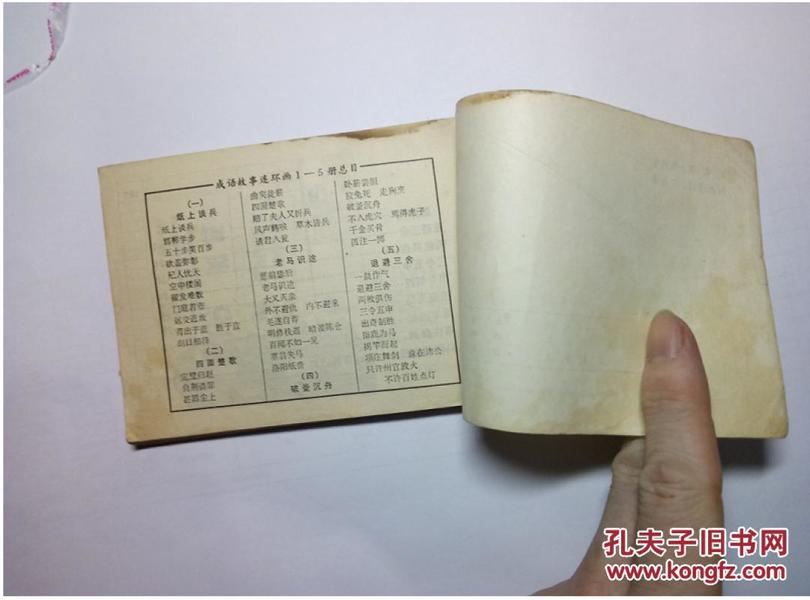 成语故事连环画1—5册总目
(一)
纸上谈兵
纸上谈兵
邯郸学步
五十步笑百步
欲盖弥彰
杞人忧天
空中楼阁
擢发难数
门庭若市
远交近攻
青出于蓝 胜于蓝
刮目相待
(二)
四面楚歌
完璧归赵
负荆请罪
甚嚣尘上
曲突徙薪
四面楚歌
赔了夫人又折兵
风声鹤唳 草木皆兵
请君入瓮
(三)
老马识途
惩前毖后
老马识途
大义灭亲
外不避仇 内不避亲
毛遂自荐
明修栈道 暗渡陈仓
百闻不如一见
塞翁失马
洛阳纸贵
(四)
破釜沉舟
卧薪尝胆
狡兔死 走狗烹
破釜沉舟
不入虎穴 焉得虎子
千金买骨
孤注一掷
(五)
退避三舍
一鼓作气
退避三舍
两败俱伤
三令五申
出奇制胜
指鹿为马
揭竿而起
项庄舞剑 意在沛公
只许州官放火
不许百姓点灯
孔夫子旧书网
www.kongfz.com